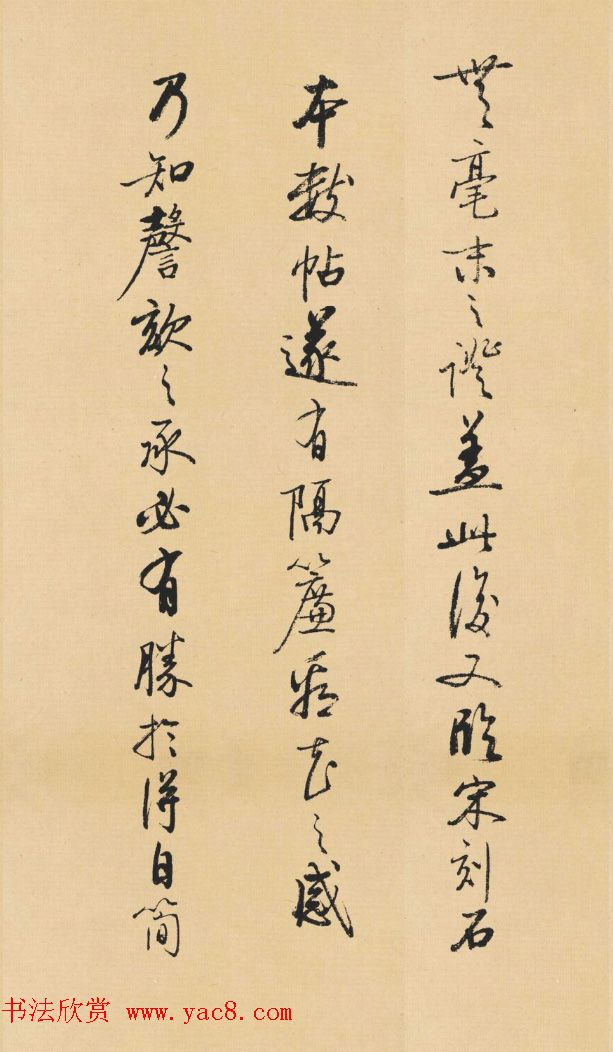 無毫末之證蓋此後又臨宋刻石
本數帖遂有隔簾看花之感
乃知謦欬之承必有勝於得自簡
书法欣赏 www.yac8.com